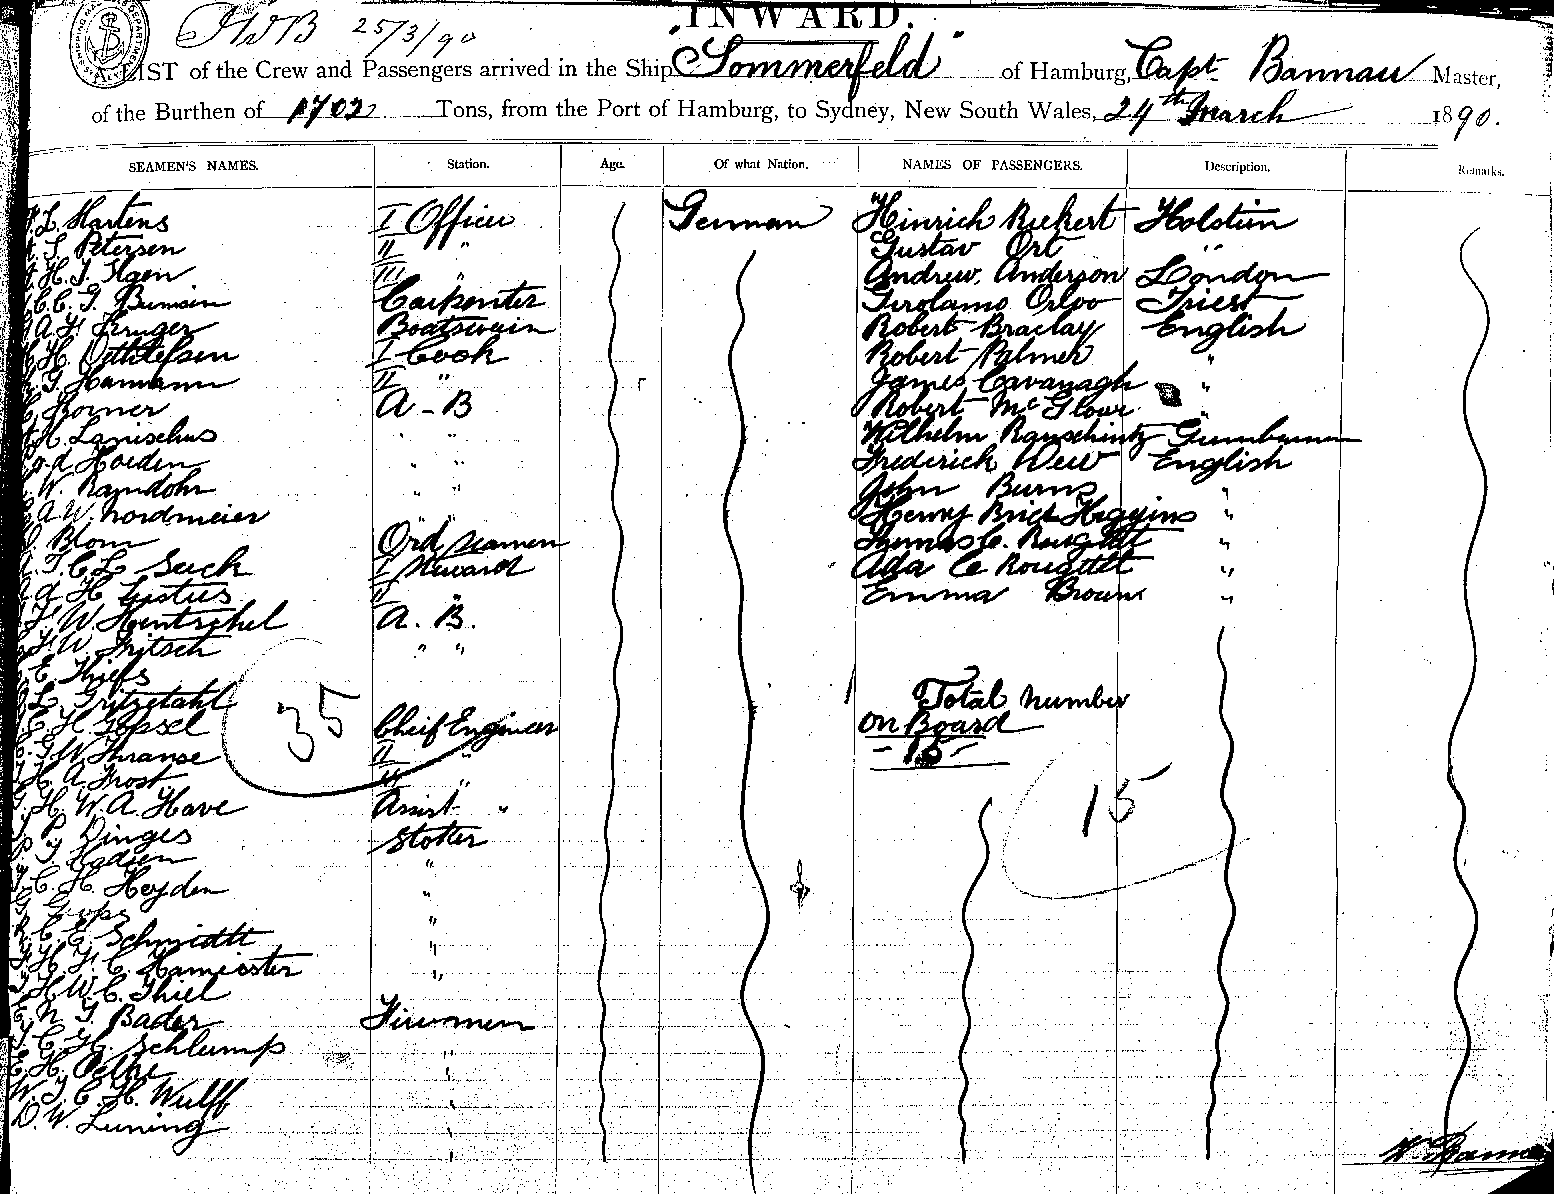 25/3/90
INWARD.
A LIST of the Crew and Passengers arrived in the Ship "Sommerfeld" of Hamburg, Capt. Bannau Master,
of the Burthen of 1702 Tons, from the Port of Hamburg, to Sydney, New South Wales, 24th March 1890.
SEAMEN'S NAMES. Station. Age. Of what Nation. NAMES OF PASSENGERS. Description. Remarks.
Martens I Officer German Hinrich Riekert Holstein
Petersen II " Gustav Ort "
H. J. Ilgen III " Andrew Anderson London
C. C. J. Carpenter Girolamo Orloo Triest
Kruger Boatswain Robert Braclay English
H. Dethlefsen I Cook Robert Palmer "
Hamann II " James Cavanagh "
Horner A - B Robert McGlour "
" " Wilhelm
Hoeden " " Frederick Weir English
W. Ramdohr " " John Burns "
A W. Nordmeier Henry Brick Higgins "
Blom Ord. seamen Thomas C. "
J. C. L. Suck I Steward Ada C Rougett "
H. Justus II " Emma Brown "
W. Hentschel A. B.
W. Fritsch " "
E. Thiefs
L. Total number
H. Gossel Cheif Engineer on Board
W. Thranse II " - 15 -
A. Frost III "
H. W. A. Have Assist "
P. Dinges Stoker
Hadsen "
C. H. Heyden "
"
C. E. Schmidtt "
H. F. C. Hameister "
H W C. Thiel
N. J. Bader Firemen
C. H. Schlump "
H. "
W. J. C. H. Wulff "
O. W. Luning "
35
15